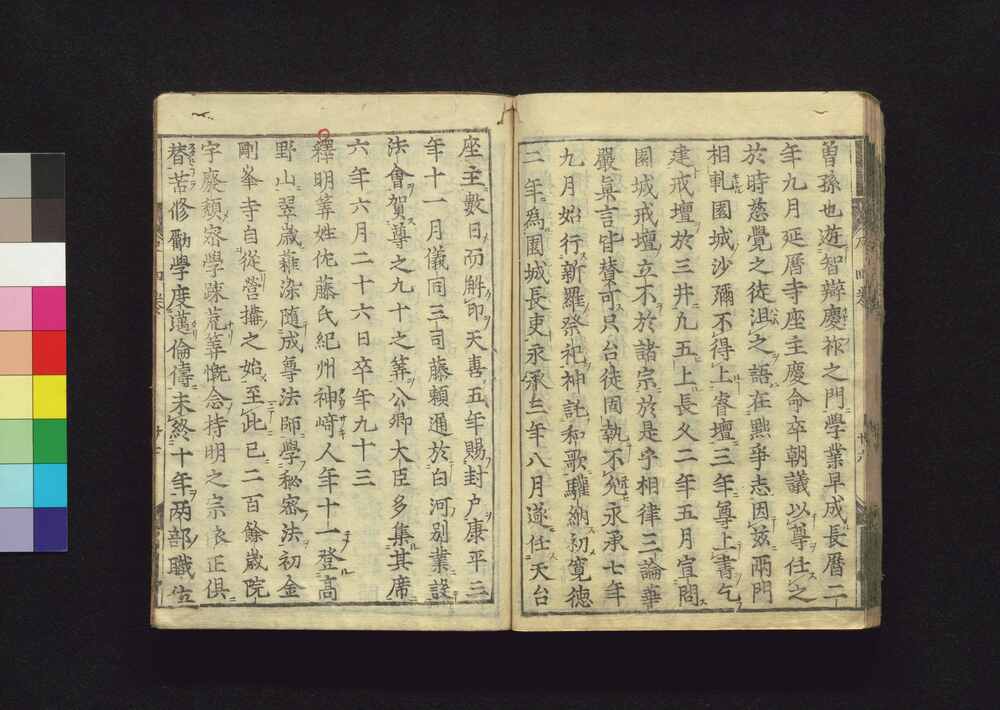 曽孫也遊智辯慶祚之門學業早成長曆二
年九月延曆寺座主慶命卒朝議以尊任之
於時慈覺之徒沮之語在㸃爭志因茲兩門
相軋園城沙彌不得上睿壇三年尊上書乞
建戒壇於三井九五上長久二年五月宣問
園城戒壇立不於諸宗於是乎相律三論華
嚴眞言皆賛可只台徒固執不兊永承七年
九月始行新羅祭祀神託和歌驩納初寛德
二年爲園城長吏永承三年八月遂任天台
座主數日而解印天喜五年賜封户康平三
年十一月儀同三司藤賴通於白河別業設
法會賀尊之九十之筭公卿大臣多集其席
六年六月二十六日卒年九十三
釋明筭姓佐藤氏紀州神﨑人年十一登高
野山翠歳薙染隨成尊法師學秘密法初金
剛峯寺自從營搆之始至此已二百餘歳院
宇廢頽密學踈荒筭慨念持明之宗依正倶
替苦修勵學度邁倫儔未終十年兩部職位